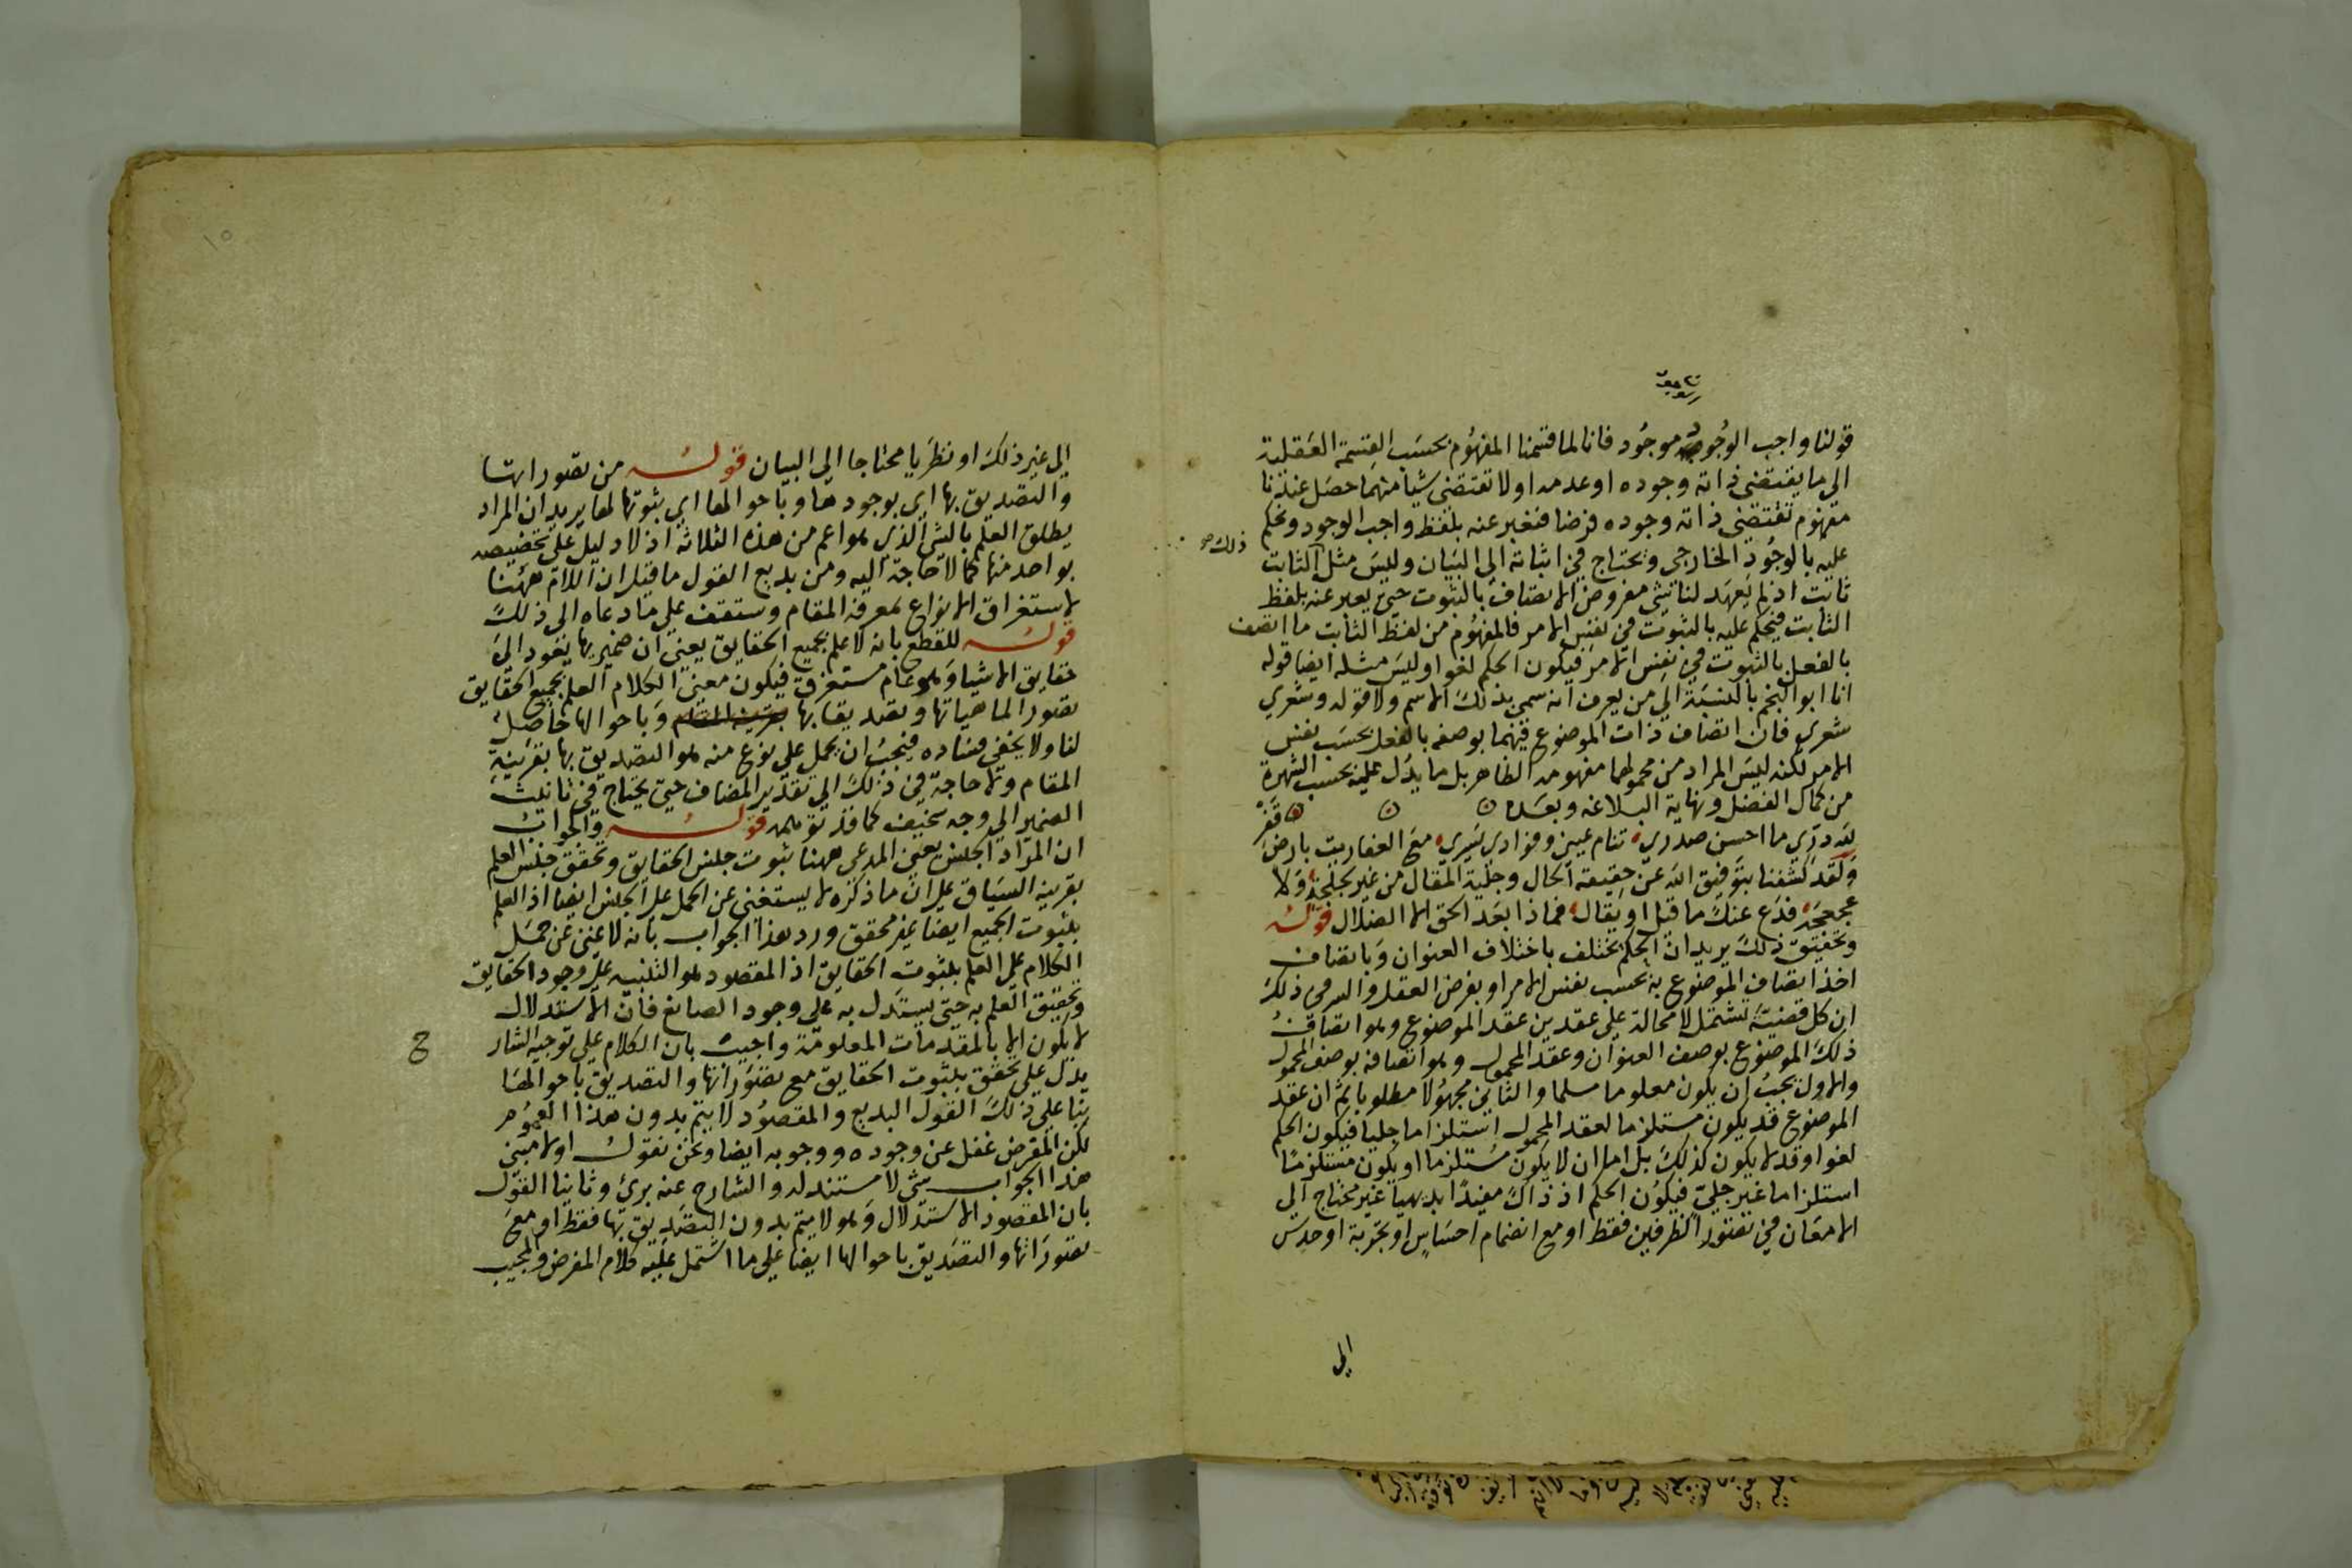 قولنا واجب الوجود موجود فانا لما قسمنا المفهوم بحسب القسمة العقلية
الي ما يقتضي ذاته وجوده او عدمه او لا تقتضي شيأ منهما حصل عندنا
مفهوم تقتضي ذاته وجوده فرضا فنعبر عنه بلفظ واجب الوجود ونحكم
عليه بالوجود الخارجي ونحتاج في اثباته الي البيان وليس مثل الثابت
ذلك
ثابت اذ لم يعهد لنا شي مفروض الاتصاف بالثبوت حتي يعبر عنه بلفظ
الثابت فيحكم عليه بالثبوت في نفس الامر فالمفهوم من لفظ الثابت ما اتصف
بالفعل بالثبوت في نفس الامر فيكون الحكم لغوا وليس مثله ايضا قوله
انا ابو النجم بالنسبة الي من يعرف انه سمي بذلك الاسم ولا قوله وشعري
شعري فان اتصاف ذات الموضوع فيهما بوصفه بالفعل بحسب نفس
الامر لكنه ليس المراد من محمولهما مفهومه الظاهر بل ما يدل عليه بحسب الشهرة
من كمال الفضل ونهاية البلاغه وبعده
لله دري ما احسن صدري تنام عيني وفوادي يسري مع العفاريت بارض قفر
ولقد كشفنا بتوفيق الله عن حقيقة الحال وجلية المقال من غير لجلجة ولا
عجعجة فدع عنك ما قيل او يقال فماذا بعد الحق الا الضلال قوله
وتحقيق ذلك يريد ان الحكم يختلف باختلاف العنوان وباتصاف
اخذ اتصاف الموضوع به بحسب نفس الامر او بفرض العقل والسر في ذلك
ان كل قضية تشتمل لا محالة علي عقدين عقد الموضوع وهو اتصاف
ذلك الموضوع بوصف العنوان وعقد المحمول وهو اتصافه بوصف المحمول
والاول يجب ان يكون معلوما مسلما والثاني مجهولا مطلوبا ثم ان عقد
الموضوع قد يكون مستلزما لعقد المحمول استلزاما جليا فيكون الحكم
لغوا وقد لا يكون كذلك بل اما ان لا يكون مستلزما او يكون مستلزما
استلزاما غير جلي فيكون الحكم اذ ذاك مفيدا بديهيا غير محتاج الي
الامعان في تصور الطرفين فقط او مع انضمام احساس او تجربة او حدس
الي
١٥
الي غير ذلك او نظريا محتاجا الي البيان قوله من تصوراتها
والتصديق بها اي بوجودها وباحوالها اي بثبوتها لها يريد ان المراد
يطلق العلم بالشي الذي هو اعم من هذه الثلاثة اذ لا دليل علي تخصيصه
بواحد منها كما لا حاجة اليه ومن بديع القول ما قيل ان اللام ههنا
لاستغراق الانواع لمعرفة المقام وستقف علي ما دعاه الي ذلك
قوله للقطع بانه لا علم بجميع الحقايق يعني ان ضمير بها يعود الي
حقايق الاشيا وهو عام مستغرق فيكون معني الكلام العلم بجميع الحقايق
تصورا لماهياتها وتصديقا بها وباحوالها حاصل
لنا ولا يخفي فساده فيجب ان يحمل علي نوع منه هو التصديق بها بقرينة
المقام ولا حاجة في ذلك الي تقدير المضاف حتي يحتاج في تانيث
الضمير الي وجه سخيف كما قد توهمه قوله والجواب
ان المراد الجنس يعني المدعي ههنا ثبوت جنس الحقايق وتحقق جنس العلم
بقرينه السياق علي ان ما ذكره لا يستغني عن الحمل علي الجنس ايضا اذ العلم
بثبوت الجميع ايضا غير محقق ورد هذا الجواب بانه لا غني عن حمل
الكلام علي العلم بثبوت الحقايق اذ المقصود هو التنبيه علي وجود الحقايق
وتحقيق العلم به حتي يستدل به علي وجود الصانع فان الاستدلال
لا يكون الا بالمقدمات المعلومة واجيب بان الكلام علي توجيه الشار
ح
يدل علي تحقق بثبوت الحقايق مع تصوراتها والتصديق باحوالها
بنا علي ذلك القول البديع والمقصود لا يتم بدون هذا العموم
لكن المعرض غفل عن وجوده ووجوبه ايضا ونحن نقول اولا مبني
هذا الجواب شي لا مستند له والشارح عنه بريء وثانيا القول
بان المقصود الاستدلال وهو لا يتم بدون التصديق بها فقط او مع
تصوراتها والتصديق باحوالها ايضا علي ما اشتمل عليه كلام المعرض والمجيب